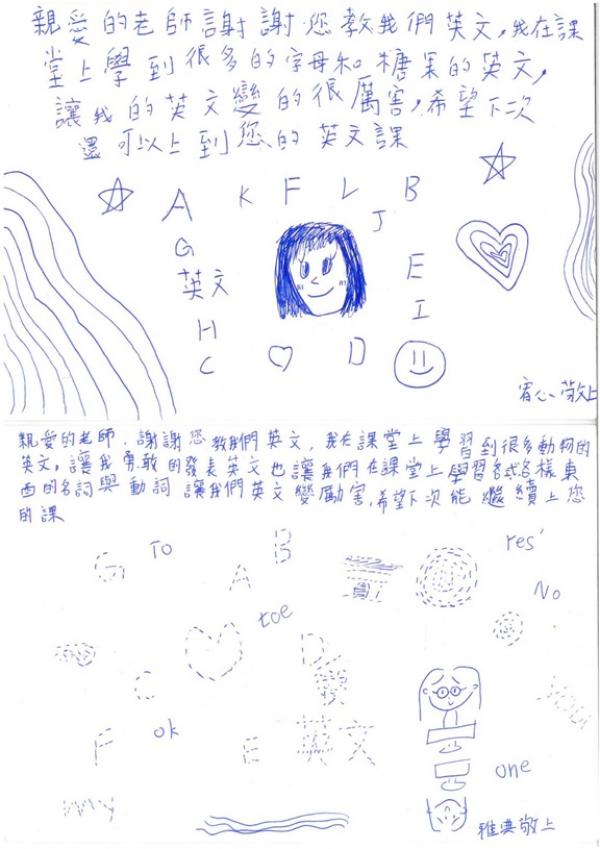 親愛的老師謝謝您教我們英文,我在課
堂上學到很多的字母和糖果的英文,
讓我的英文變的很厲害,希望下次
還可以上到您的英文課
A K F L B
J
G
E
英文
I
H
C D
敬上
親愛的老師,謝謝您教我們英文,我在課堂上學習到很多動物的
英文,讓我勇敢的發表英文也讓我們在課堂上學習各式各樣東
西的名詞與動詞 讓我們英文變勵害,希望下次能繼續上您
的課
To B res'
G A
No
toe
D
C
you
F ok E 英文
one
my
雅婕敬上